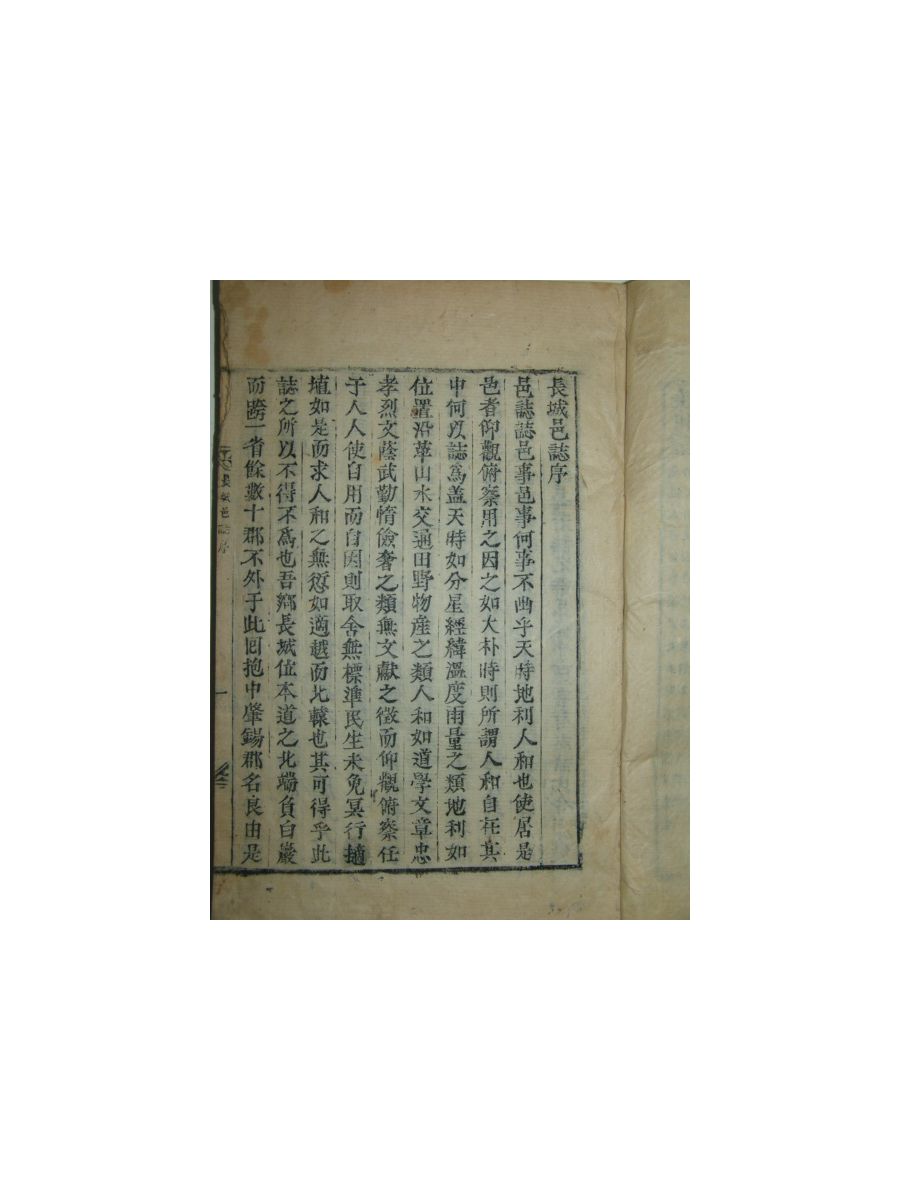 長城邑誌序
邑誌誌邑事邑事何事不過乎天時地利人和也使居是
邑者仰觀俯察用之因之如大朴時則所謂人和自在其
中何以誌爲盖天時如分星經緯溫度雨量之類地利如
位置沿革山水交通田野物產之類人和如道學文章忠
孝烈文蔭武勤惰儉奢之類無文獻之徵而仰觀俯察任
于人人使自用而自因則取舍無標準民生未免冥行擿
埴如是而求人和之無愆如適越而北轅也其可得乎此
誌之所以不得不爲也吾鄉長城位本道之北端負白巖
而跨一省餘數十郡不外于此回抱中肇錫郡名良由是
長城邑誌序
一